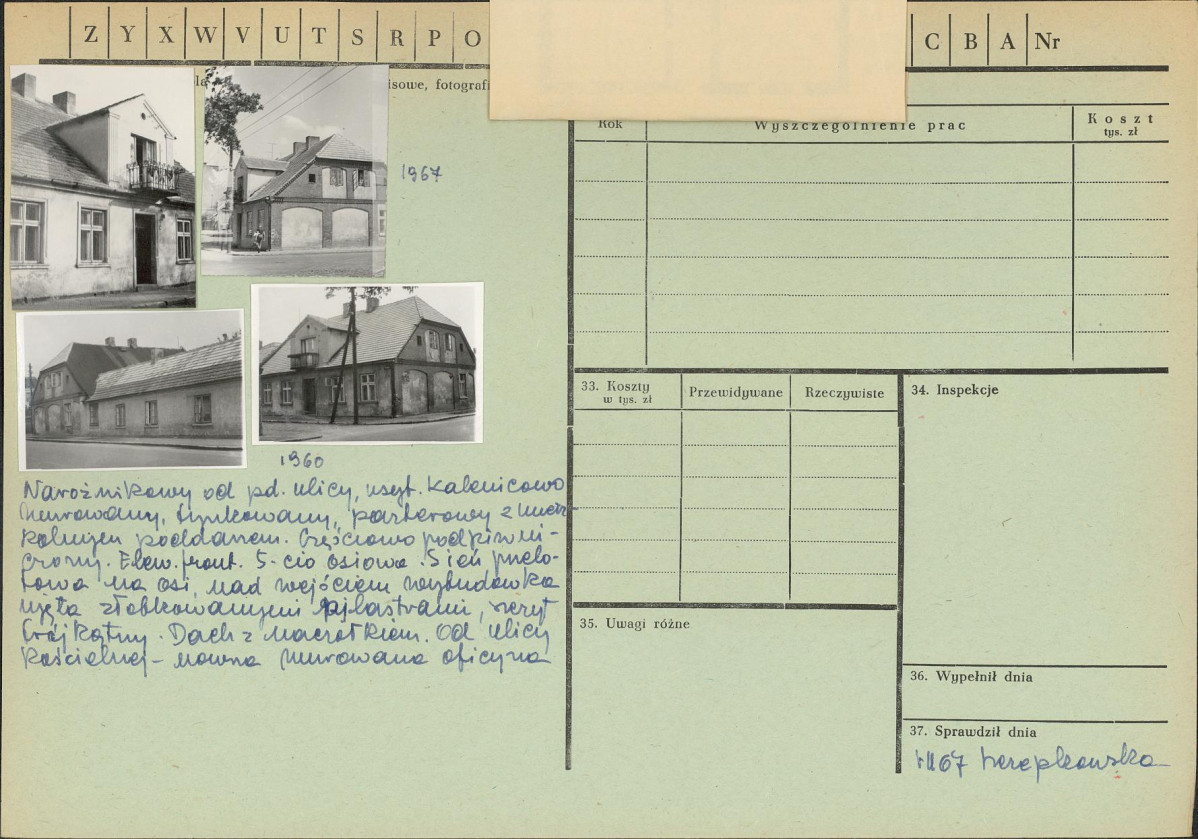 Z Y X W V U T S R P O C B A Nr
isowe, fotografi
1967
1960
Narożnikowy od pd. ulicy, usyt. kalenicowo
murowany, tynkowany, parterowy z miesz
kalnym poddaszem. Częściowo podpiwni-
czony. Elew. front. 5-cio osiowa. Sień przelo-
towa na osi, nad wejściem wybudówka
ujęta żłobkowanymi pilastrami, szczyt
trójkątny. Dach z naczółkiem. Od ulicy
Kościelnej - murowana oficyna
Rok Wyszczególnienie prac Koszt
tys. zł
33. Koszty
w tys. zł
Przewidywane
Rzeczywiste
34. Inspekcje
35. Uwagi różne
36. Wypełnił dnia
37. Sprawdził dnia